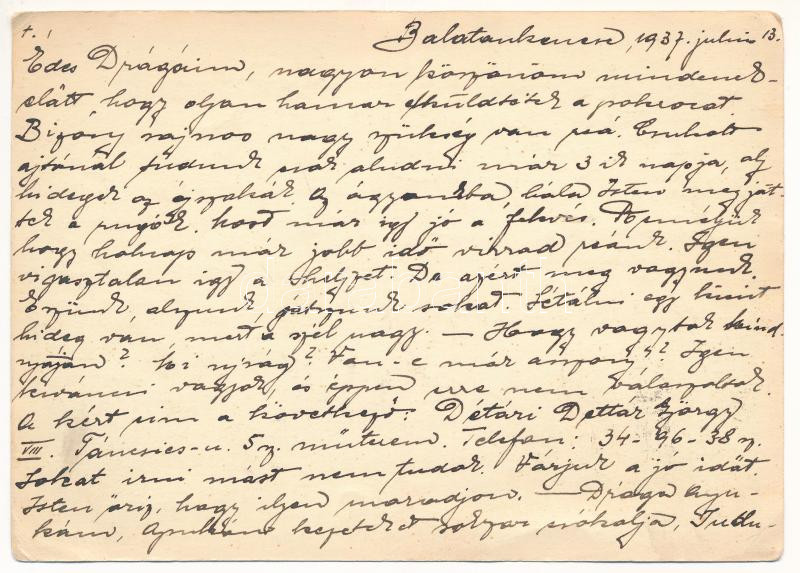 t.! Balatonkenese, 1937. julius 13.
Édes Drágáim, nagyon köszönöm mindenek-
előtt hogy olyan hamar elküldtétek a pokrocot.
Bizony sajnos nagy szükség van reá. Csukott
ajtónál tudunk csak aludni már 3 ik napja, oly
hidegek az éjszakák. Az ágyamba, hála Isten megjöt-
tek a rugók. most már igy jó a fekvés. Reméljük
hogy holnap már jobb idő virrad reánk. Igen
vigasztalan igy a helyzet. De azért meg vagyunk.
Eszünk, alszunk, játszunk sokat sétálni egy kicsit
hideg van, mert a szél nagy. — Hogy vagytok mind-
nyáján? Mi ujság? Van-e már asszony? Igen
kiváncsi vagyok, és éppen erre nem válaszoltok.
A kért cim a következő: Détári Dettar György
VIII. Táncsics-u. 5 sz. műterem. Telefon: 34-96-38 sz.
Sokat irni mást nem tudok. Várjuk a jó időt.
Isten őriz, hogy ilyen maradjon. — Drága Anyu-
kám, Apukám kezeteket sokszor csókolja,